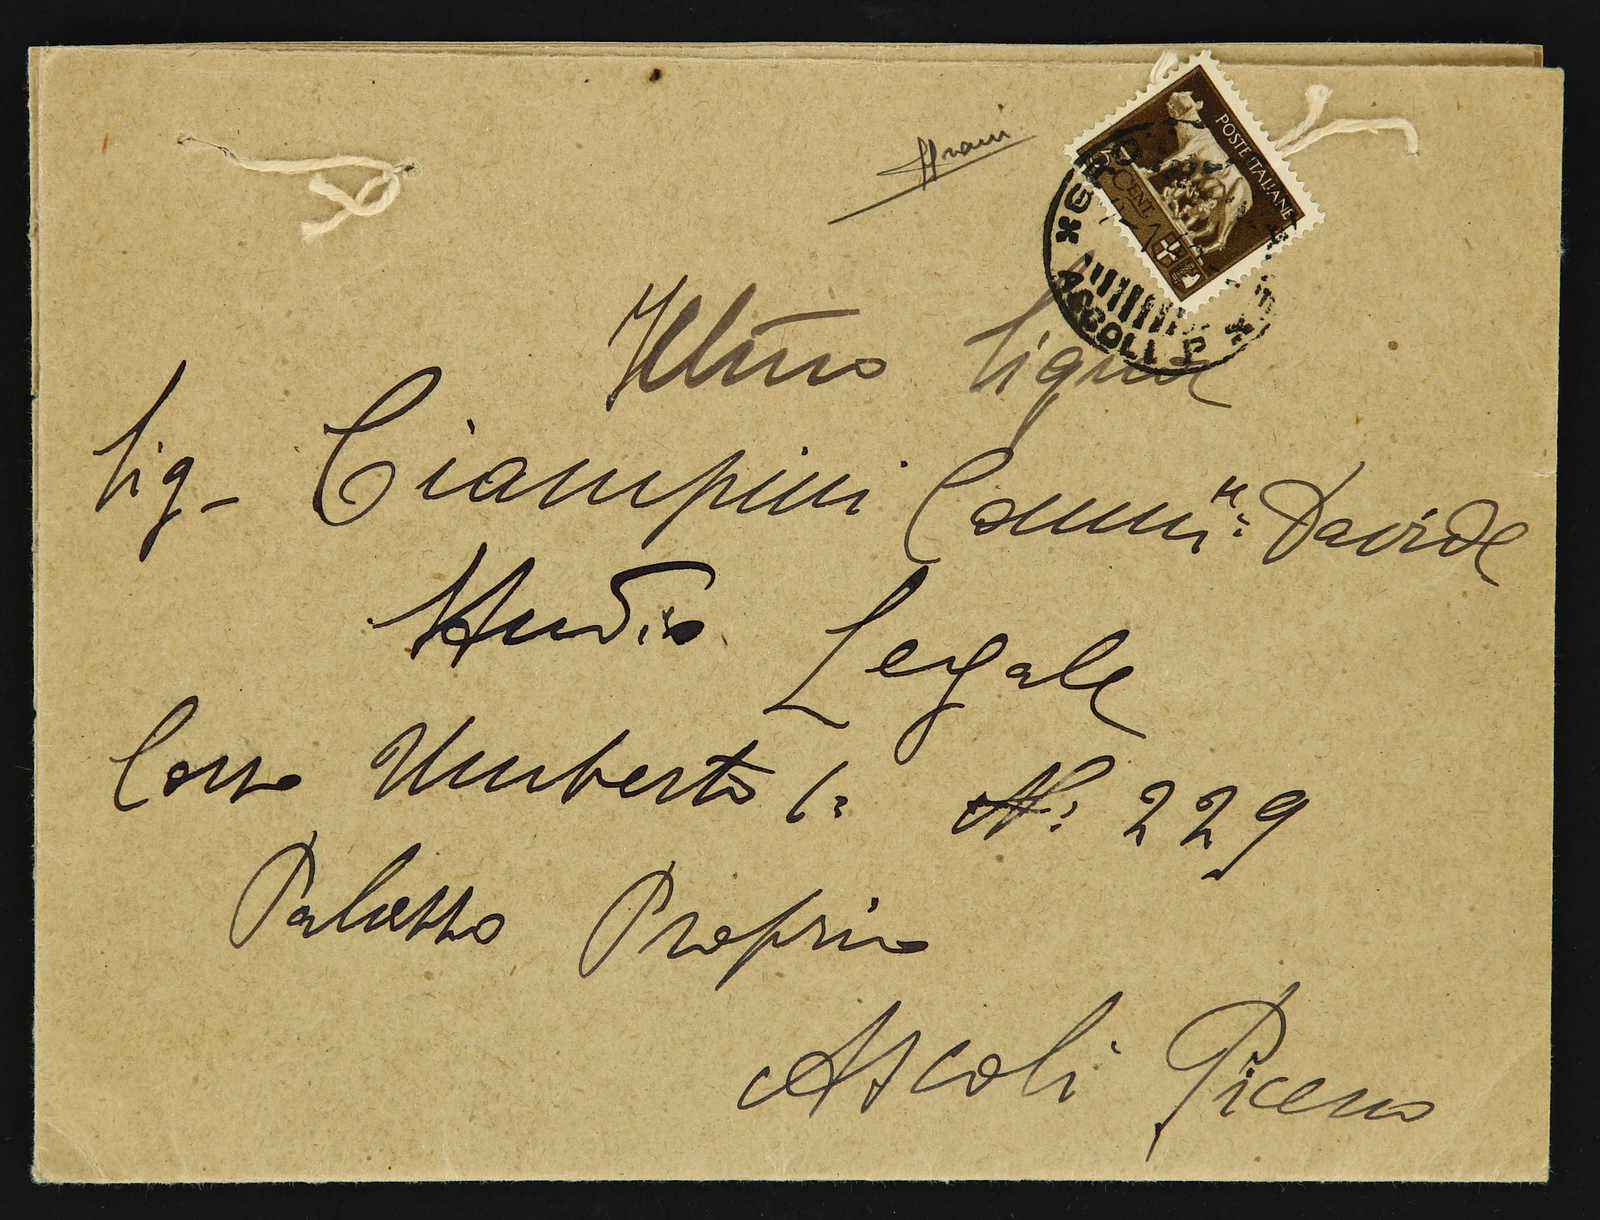 POSTE ITALIANE
CENT.
ASCOLI P.
Ill.mo Signor
Sig. Ciampini Comm.re Davide
Studio Legale
Corso Umberto 1° N° 229
Palazzo Proprio
Ascoli Piceno